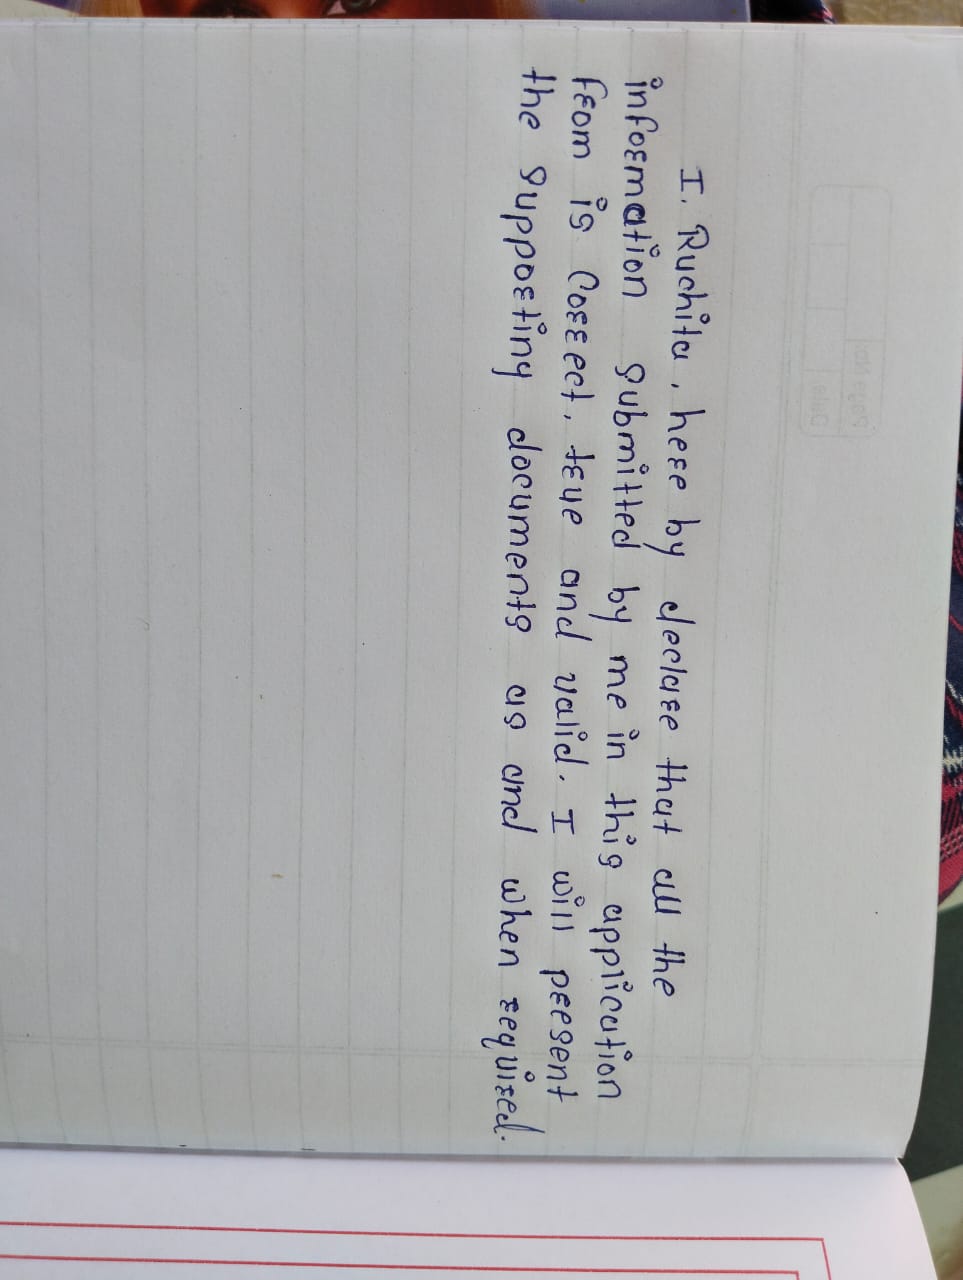 I, Ruchita, here by declare that all the
information submitted by me in this application
from is Correct, true and valid. I will present
the supporting documents as and when required.
Page No.
Date